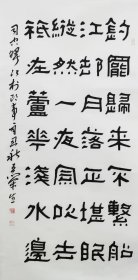 釣罷歸來不繫船
江邨月落正堪眠
縱然一夜風吹去
祇在蘆花淺水邊
司空曙江村即事